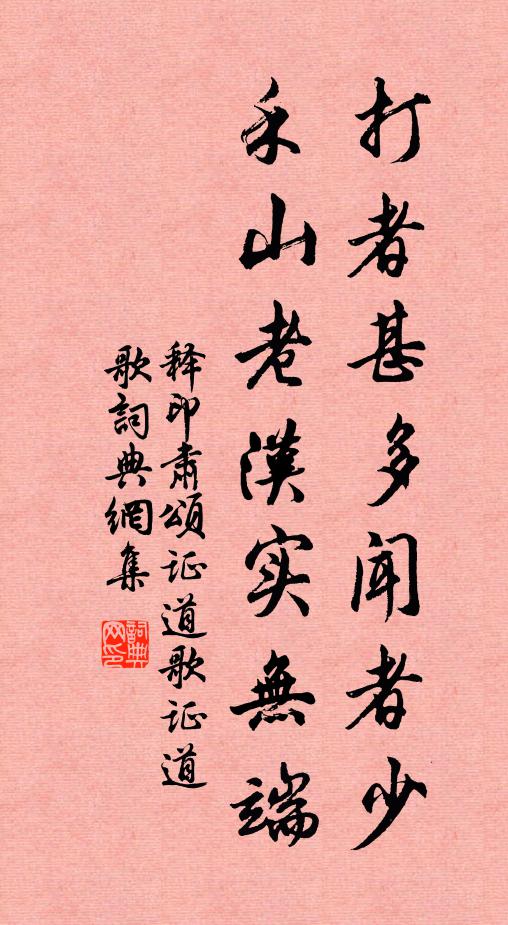 打者甚多闻者少
禾山老漢实無端
释印肃頌证道歌证道
歌詞典網集
詞典网印